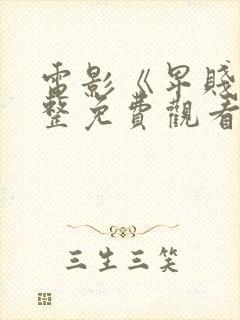 電影《卑賤
整免費觀看
三生三笑